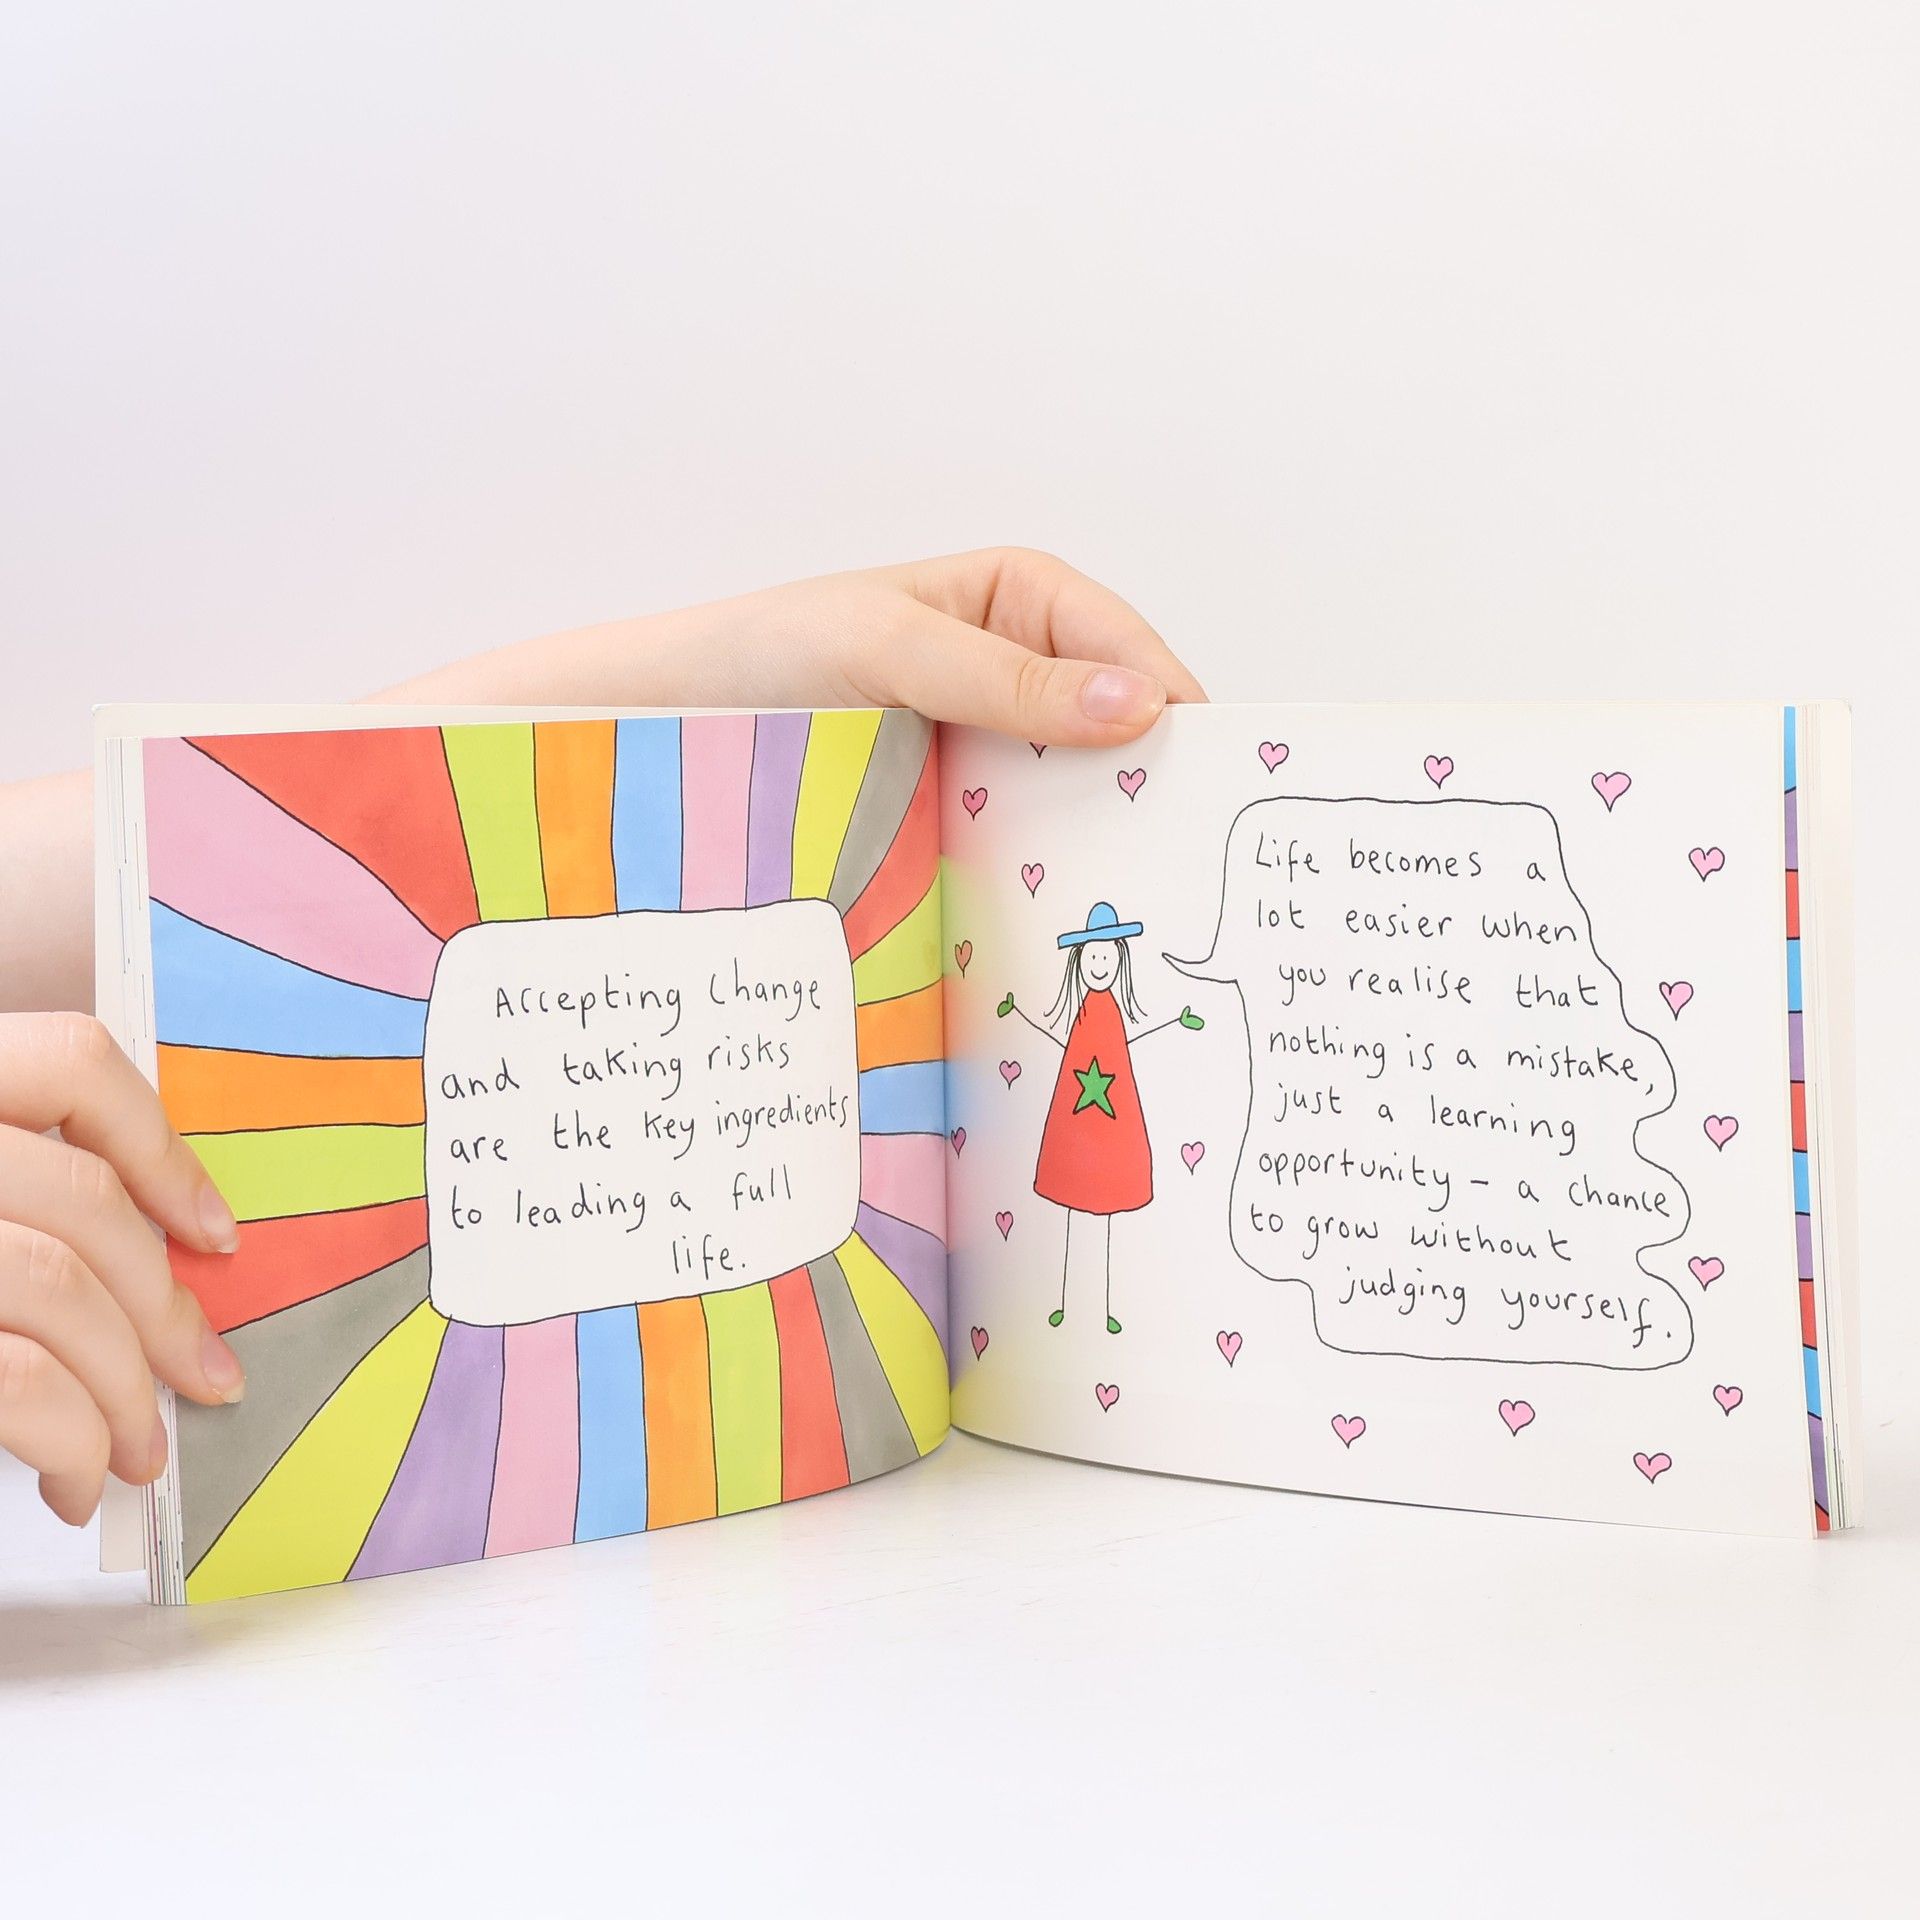 Accepting Change
and taking risks
are the key ingredients
to leading a full
life.
Life becomes a
lot easier when
you realise that
nothing is a mistake,
just a learning
opportunity - a chance
to grow without
judging yourself.